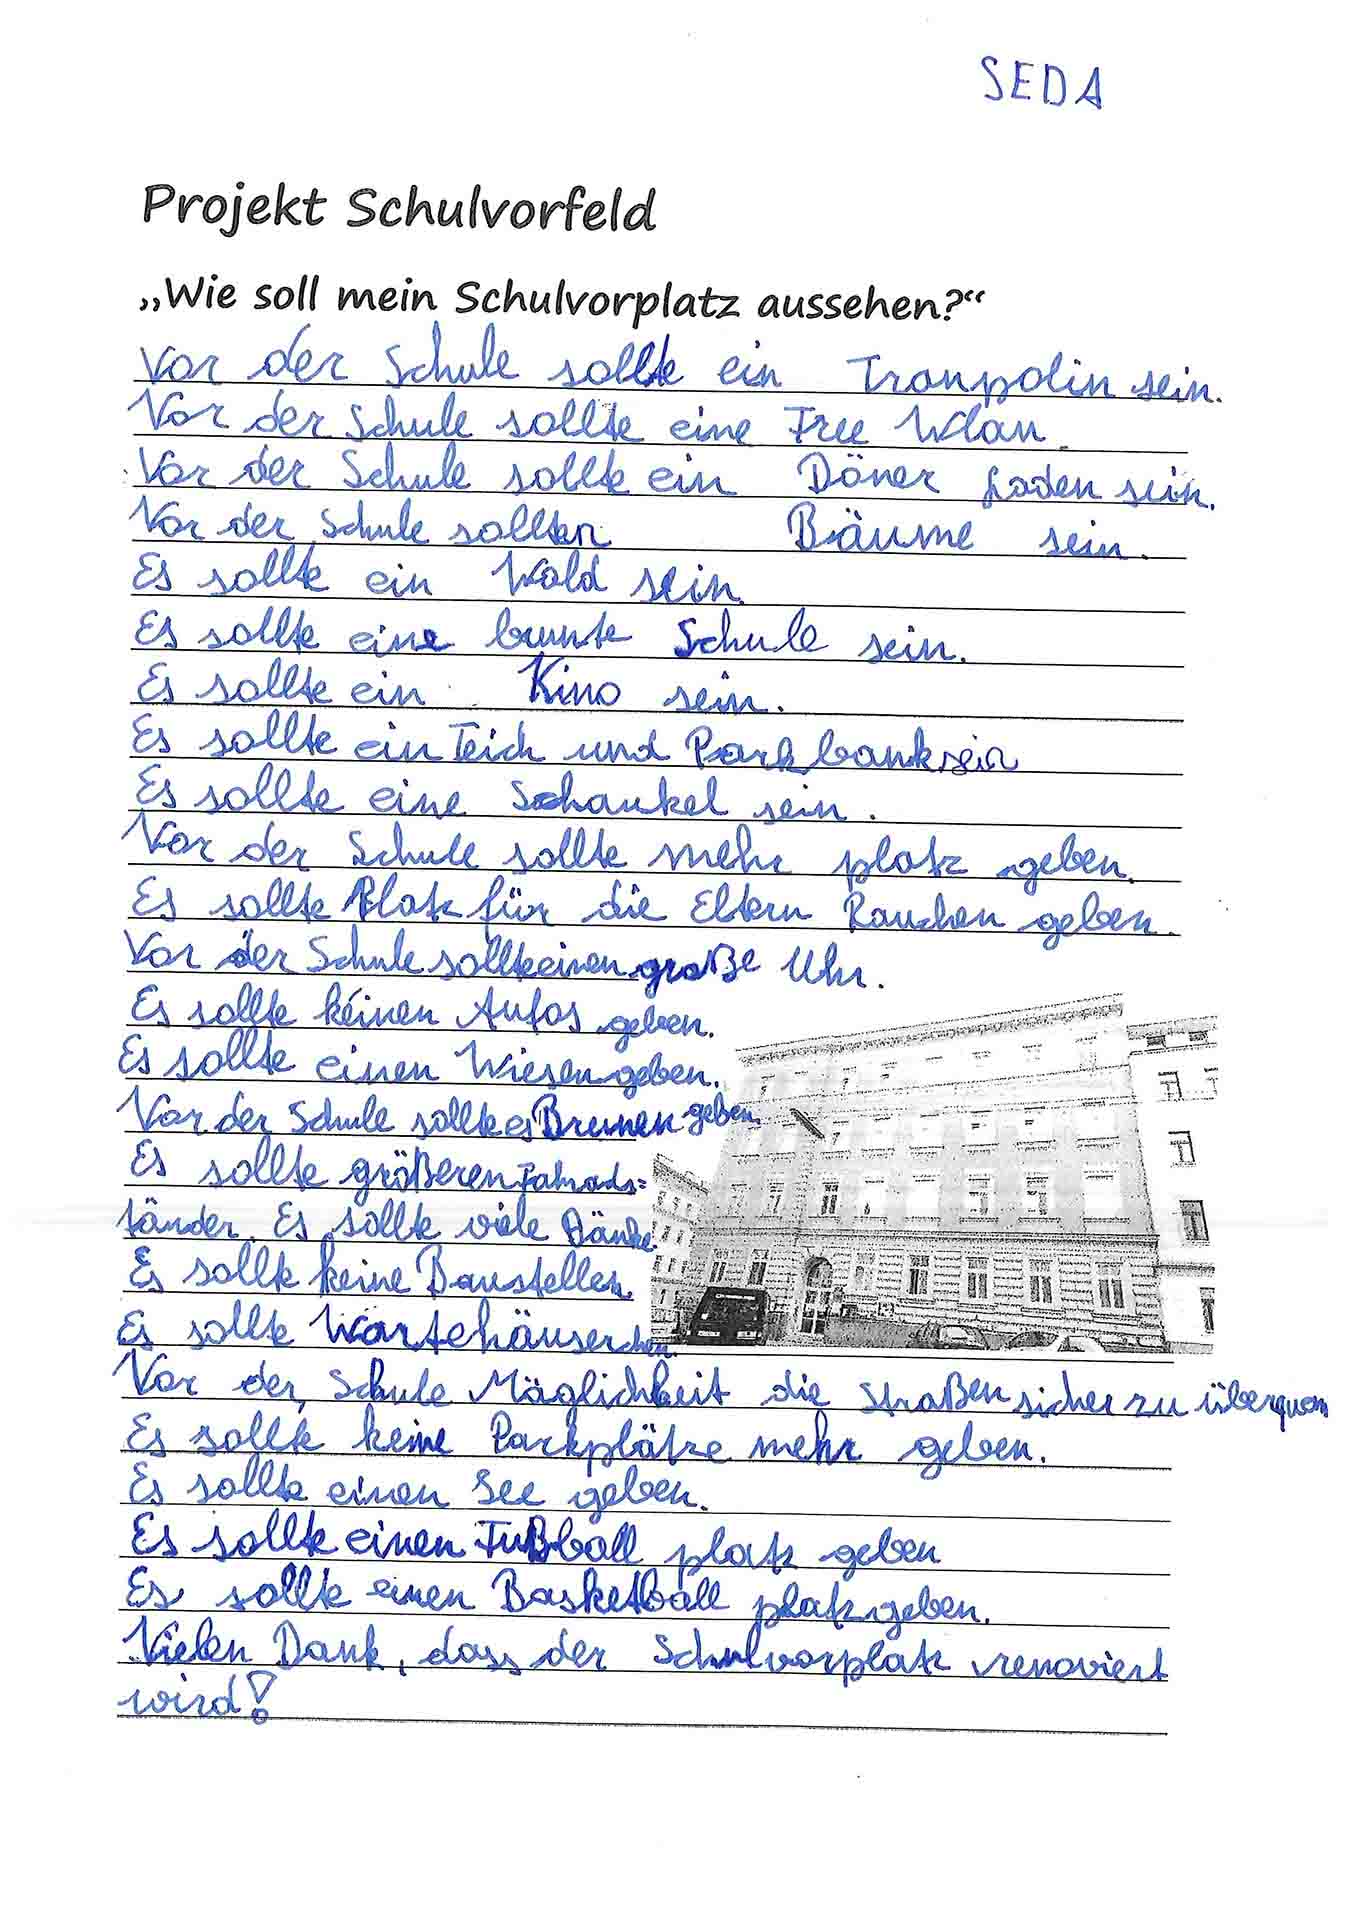 SEDA
Projekt Schulvorfeld
„Wie soll mein Schulvorplatz aussehen?“
Vor der Schule sollte ein Tranpolin sein.
Vor der Schule sollte eine Free Wlan
Vor der Schule sollte ein Döner Laden sein.
Vor der Schule sollten Bäume sein.
Es sollte ein Wald sein.
Es sollte eine bunte Schule sein.
Es sollte ein Kino sein.
Es sollte ein Teich und Parkbank sein
Es sollte eine Schaukel sein.
Vor der Schule sollte mehr platz geben.
Es sollte Platz für die Eltern Rauchen geben.
Vor der Schule sollte einen große Uhr.
Es sollte keinen Autos geben.
Es sollte einen Wiesen geben.
Vor der Schule sollte es Brunen geben.
Es sollte größeren Fahrads=
tänder. Es sollte viele Bänke.
Es sollte keine Baustellen.
Es sollte Wartehäuserchen.
Vor der Schule Möglichkeit die Straßen sicher zu überquern
Es sollte keine Parkplätze mehr geben.
Es sollte einen See geben.
Es sollte einen Fußball platz geben
Es sollte einen Basketball platz geben.
Vielen Dank, dass der Schulvorplatz renoviert
wird!